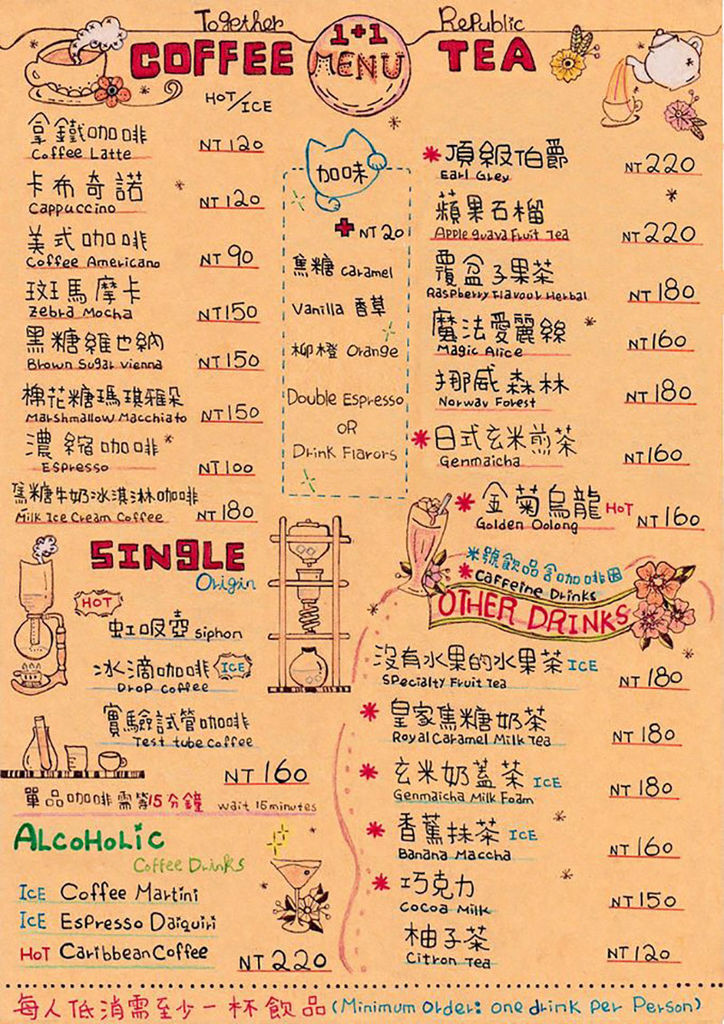 Together 1+1 Republic
COFFEE MENU TEA
HOT/ICE
拿鐵咖啡
Coffee Latte NT 120
卡布奇諾
Cappuccino NT 120
美式咖啡
Coffee Americano NT 90
斑馬摩卡
Zebra Mocha NT 150
黑糖維也納
Brown Sugar Vienna NT 150
棉花糖瑪琪雅朵
Marshmallow Macchiato NT 150
濃縮咖啡*
Espresso NT 100
焦糖牛奶冰淇淋咖啡
Milk Ice Cream Coffee NT 180
加味
+NT 20
焦糖 Caramel
Vanilla 香草
柳橙 Orange
Double Espresso
OR
Drink Flavors
*頂級伯爵
Earl Grey NT 220
蘋果石榴
Apple guava Fruit Tea NT 220
覆盆子果茶
Raspberry Flavour Herbal NT 180
魔法愛麗絲
Magic Alice NT 160
挪威森林
Norway Forest NT 180
*日式玄米煎茶
Genmaicha NT 160
*金菊烏龍 HOT
Golden Oolong NT 160
米號飲品含咖啡因
*Caffeine Drinks
SINGLE
Origin
HOT
虹吸壺 Siphon
冰滴咖啡 ICE
Drop Coffee
實驗試管咖啡
Test tube Coffee
NT 160
單品咖啡需等15分鐘 wait 15 minutes
ALCOHOLIC
Coffee Drinks
ICE Coffee Martini
ICE Espresso Daiquiri
HOT Caribbean Coffee NT 220
OTHER DRINKS
沒有水果的水果茶 ICE
Specialty Fruit Tea NT 180
*皇家焦糖奶茶
Royal Caramel Milk Tea NT 180
*玄米奶蓋茶 ICE
Genmaicha Milk Foam NT 180
*香蕉抹茶 ICE
Banana Maccha NT 160
*巧克力
Cocoa Milk NT 150
柚子茶
Citron Tea NT 120
每人低消需至少一杯飲品 (Minimum Order: one drink per Person)